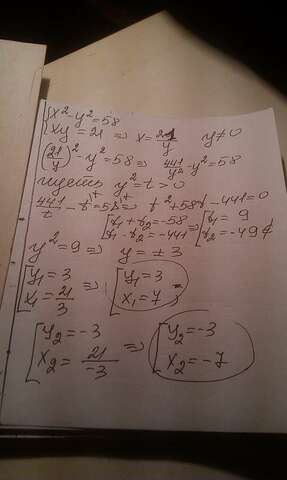 {x²-y²=58
{xy=21 ⇒ x=21/y y≠0
(21/y)²-y²=58 ⇒ 441/y²-y²=58
пусть y²=t>0
441/t - t\t = 58\t ⇒ t²+58t-441=0
[t₁+t₂=-58 ⇒ [t₁=9
[t₁·t₂=-441 [t₂=-49¢
y²=9 ⇒ y=±3
[y₁=3 ⇒ [y₁=3
[x₁=21/3 [x₁=7
[y₂=-3 ⇒ [y₂=-3
[x₂=21/-3 [x₂=-7